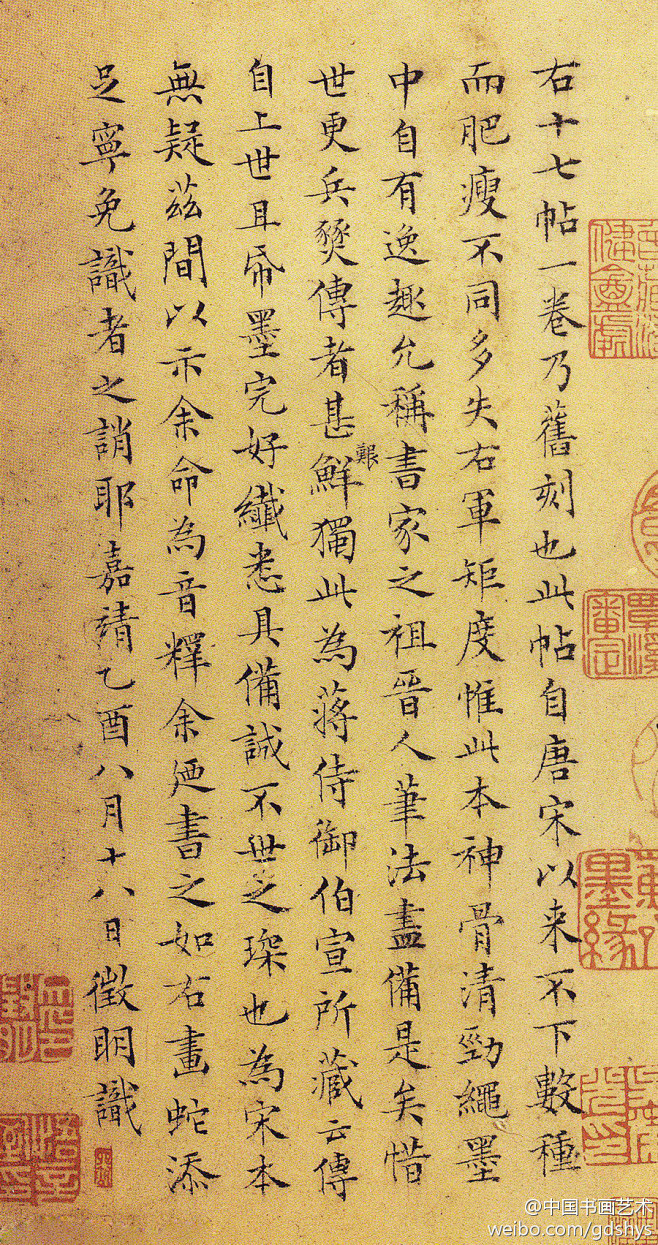 右十七帖一卷乃舊刻也此帖自唐宋以来不下數種
而肥瘦不同多失右軍矩度惟此本神骨清勁繩墨
中自有逸趣允稱書家之祖晉人筆法盡備是矣惜
世更兵燹傳者甚鮮獨此為蔣侍御伯宣所藏云傳
艱
自上世且帋墨完好纖悉具備誠不世之琛也為宋本
無疑茲間以示余命為音釋余廼書之如右畫蛇添
足寧免識者之誚耶嘉靖乙酉八月十八日徵明識
覃溪審定
墨緣
@中国书画艺术
weibo.com/gdshys